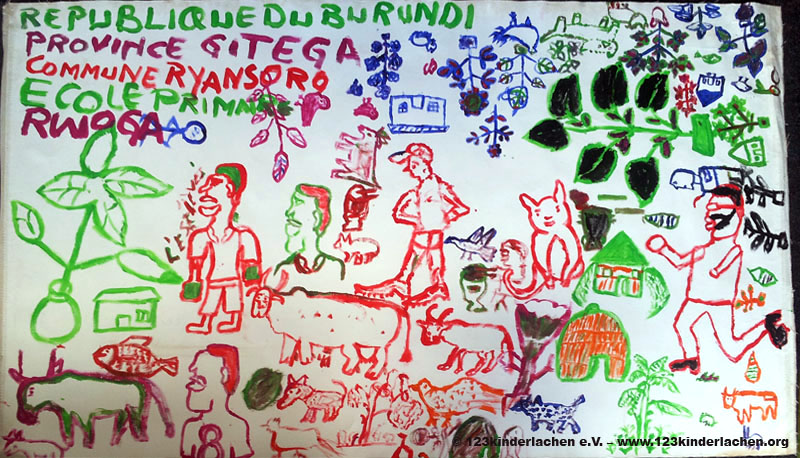 REPUBLIQUE DU BURUNDI
PROVINCE GITEGA
COMMUNE RYANSORO
ECOLE PRIMAIRE
RWOGA
© 123kinderlachen e.V. – www.123kinderlachen.org